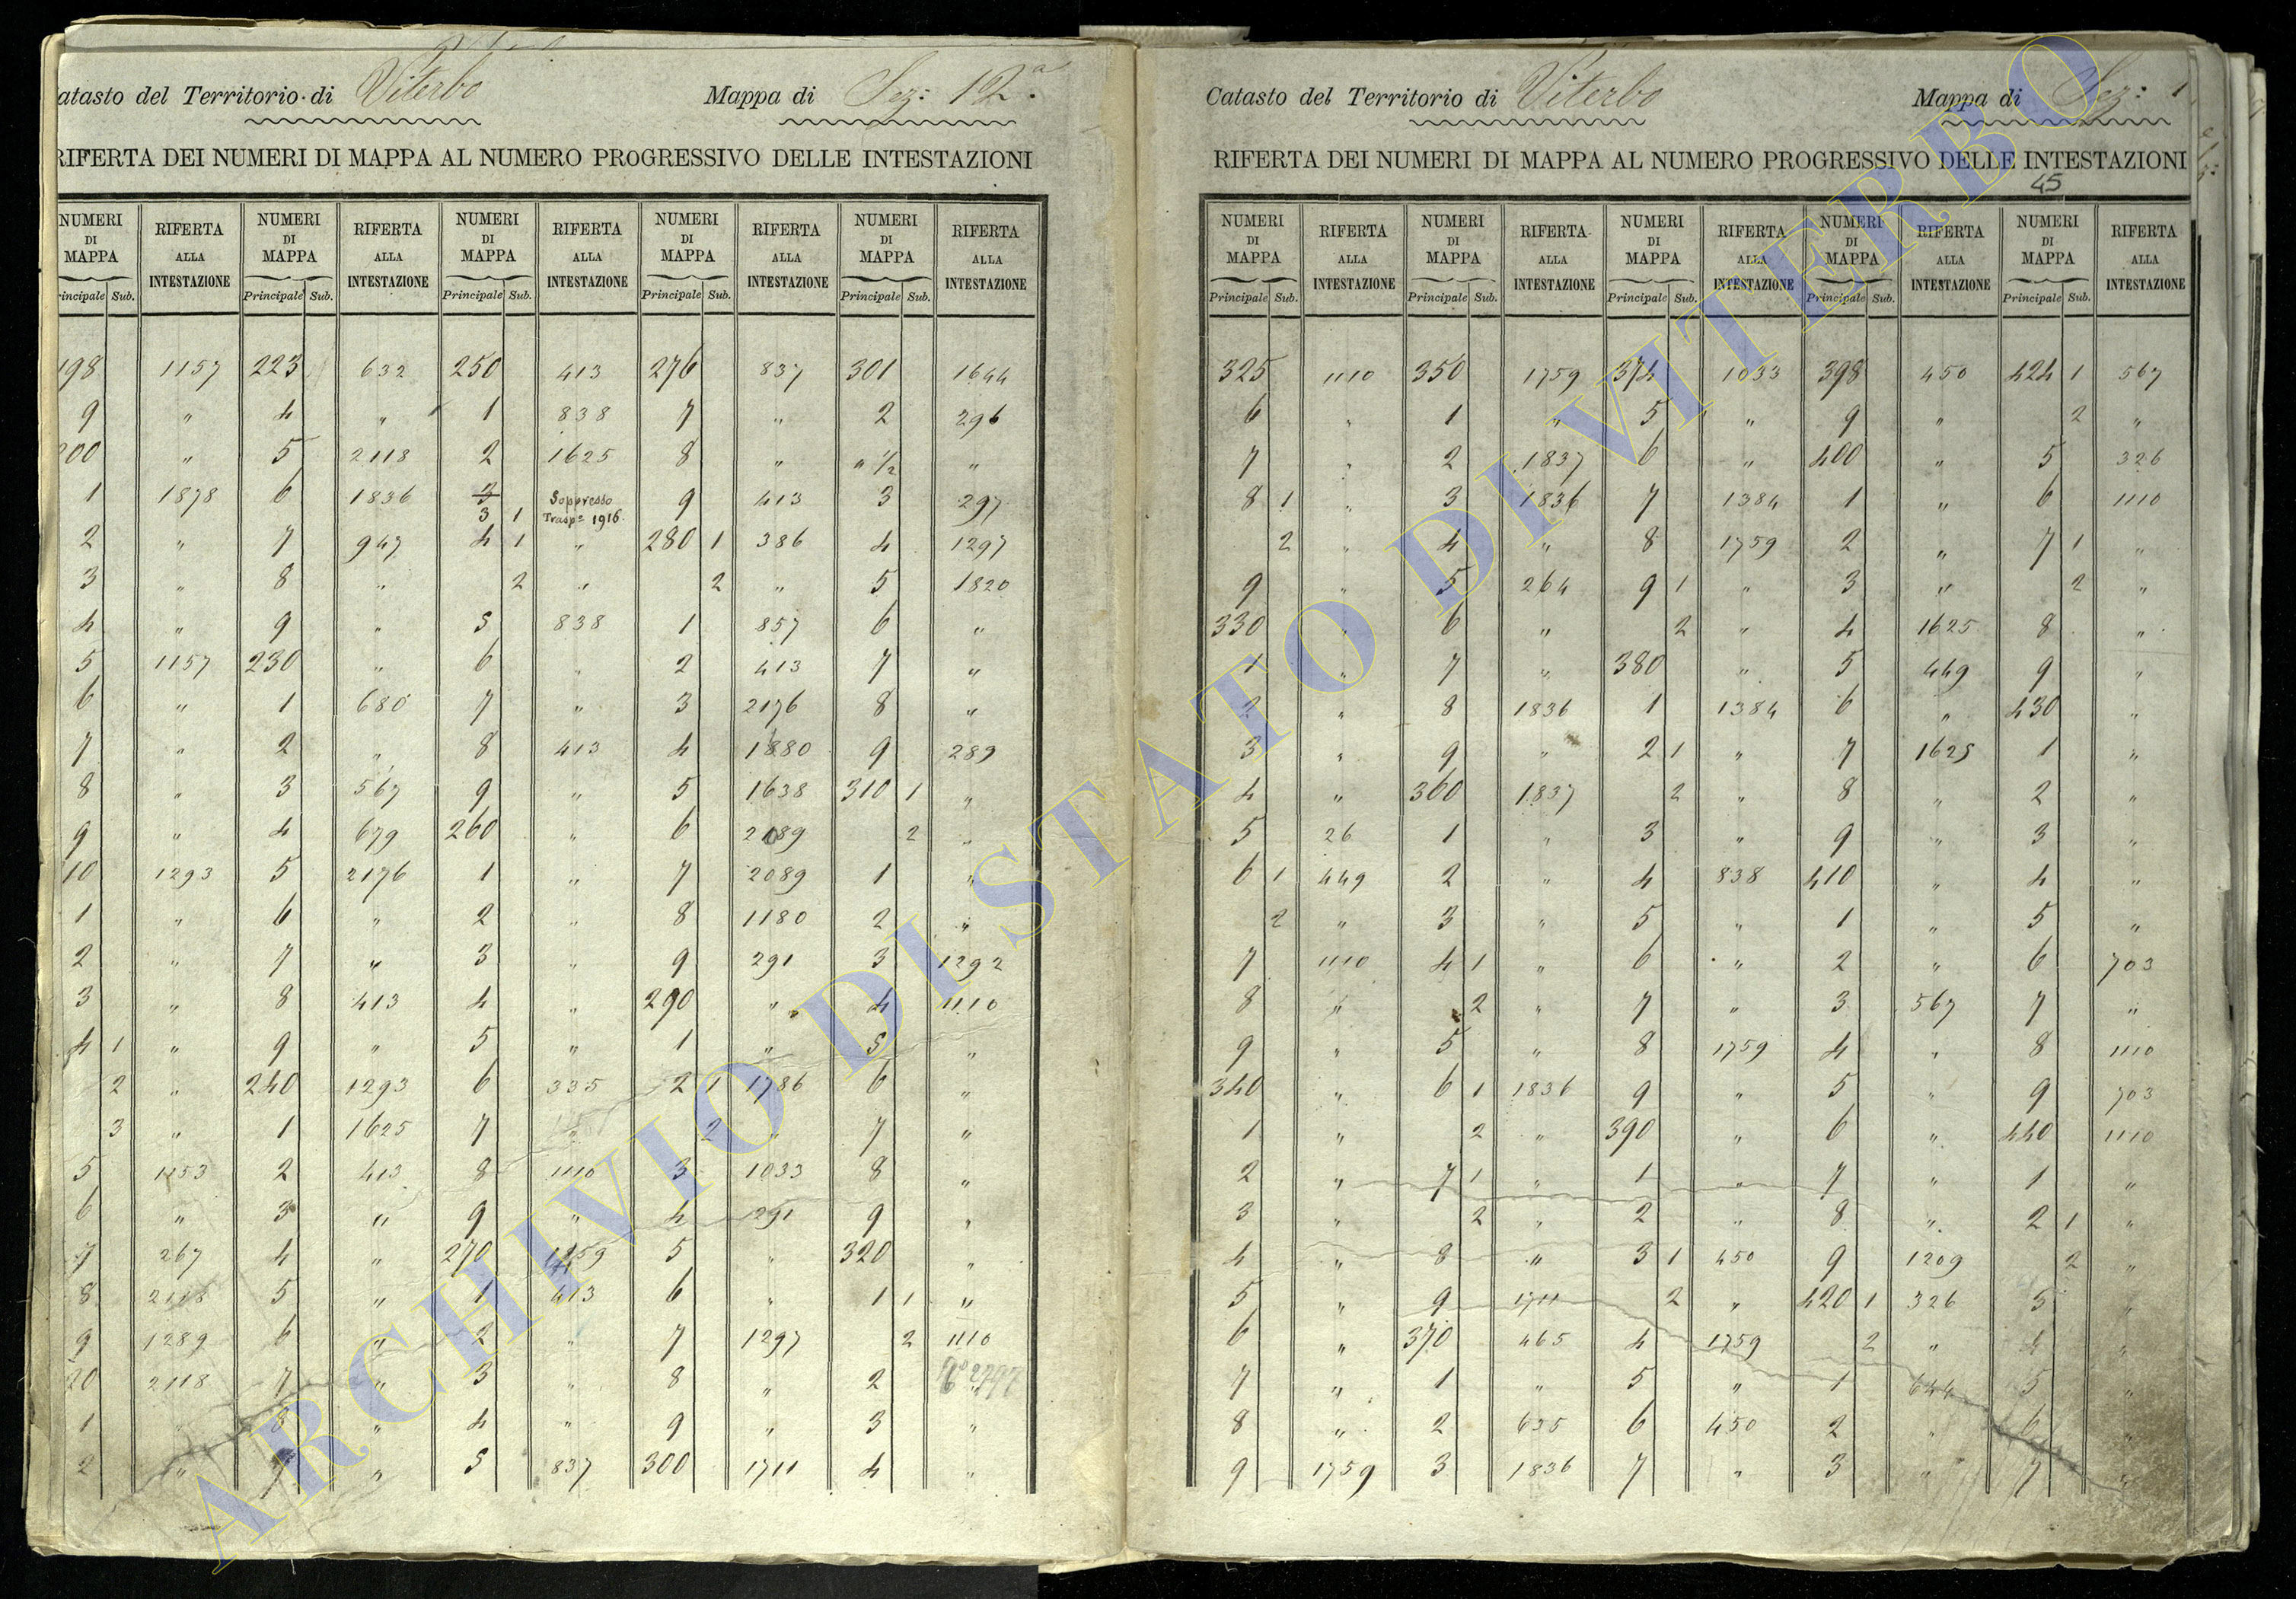 atasto del Territorio di Viterbo Mappa di Sez: 12.ª
RIFERTA DEI NUMERI DI MAPPA AL NUMERO PROGRESSIVO DELLE INTESTAZIONI
NUMERI DI MAPPA RIFERTA ALLA INTESTAZIONE NUMERI DI MAPPA RIFERTA ALLA INTESTAZIONE NUMERI DI MAPPA RIFERTA ALLA INTESTAZIONE NUMERI DI MAPPA RIFERTA ALLA INTESTAZIONE NUMERI DI MAPPA RIFERTA ALLA INTESTAZIONE
rincipale Sub. Principale Sub. Principale Sub. Principale Sub. Principale Sub.
198 1157 223 632 250 413 276 837 301 1644
9 " 4 " 1 838 7 " 2 296
00 " 5 2118 2 1625 8 " " 1/2 "
1 1878 6 1836 3 Soppresso 9 413 3 297
3 1 Trasp° 1916
2 " 7 947 4 1 " 280 1 386 4 1297
3 " 8 " 2 " 2 " 5 1820
4 " 9 " 5 838 1 857 6 "
5 1157 230 " 6 " 2 413 7 "
6 " 1 680 7 " 3 2176 8 "
7 " 2 " 8 413 4 1880 9 289
8 " 3 567 9 " 5 1638 310 1 "
9 " 4 679 260 " 6 2089 2 "
10 1293 5 2176 1 " 7 2089 1 "
1 " 6 " 2 " 8 1180 2 "
2 " 7 " 3 " 9 291 3 1292
3 " 8 413 4 " 290 " 4 1110
4 1 " 9 " 5 " 1 " 5 "
2 " 240 1293 6 335 2 1 1786 6 "
3 " 1 1625 7 " 2 " 7 "
5 1153 2 413 8 1110 3 1033 8 "
6 " 3 " 9 " 4 291 9 "
7 267 4 " 270 1759 5 " 320 "
8 2118 5 " 1 413 6 " 1 1 "
9 1289 6 " 2 " 7 1297 2 1110
20 2118 7 " 3 " 8 " 2
1 " 8 " 4 " 9 " 3 "
2 " 9 " 5 837 300 1711 4 "
Catasto del Territorio di Viterbo Mappa di Sez: 1
RIFERTA DEI NUMERI DI MAPPA AL NUMERO PROGRESSIVO DELLE INTESTAZIONI
45
NUMERI DI MAPPA RIFERTA ALLA INTESTAZIONE NUMERI DI MAPPA RIFERTA ALLA INTESTAZIONE NUMERI DI MAPPA RIFERTA ALLA INTESTAZIONE NUMERI DI MAPPA RIFERTA ALLA INTESTAZIONE NUMERI DI MAPPA RIFERTA ALLA INTESTAZIONE
Principale Sub. Principale Sub. Principale Sub. Principale Sub. Principale Sub.
325 1110 350 1759 374 1033 398 450 424 1 567
6 " 1 " 5 " 9 " 2 "
7 " 2 1837 6 " 400 " 5 326
8 1 " 3 1836 7 1384 1 " 6 1110
2 " 4 " 8 1759 2 " 7 1 "
9 " 5 264 9 1 " 3 " 2 "
330 " 6 " 2 " 4 1625 8 "
1 " 7 " 380 " 5 449 9 "
2 " 8 1836 1 1384 6 " 430 "
3 " 9 " 2 1 " 7 1625 1 "
4 " 360 1837 2 " 8 " 2 "
5 26 1 " 3 " 9 " 3 "
6 1 449 2 " 4 838 410 " 4 "
2 " 3 " 5 " 1 " 5 "
7 1110 4 1 " 6 " 2 " 6 703
8 " 2 " 7 " 3 567 7 "
9 " 5 " 8 1759 4 " 8 1110
340 " 6 1 1836 9 " 5 " 9 703
1 " 2 " 390 " 6 " 440 1110
2 " 7 1 " 1 " 7 " 1 "
3 " 2 " 2 " 8 " 2 1 "
4 " 8 " 3 1 450 9 1209 2 "
5 " 9 1711 2 " 420 1 326 3 "
6 " 370 465 4 1759 2 " 4 "
7 " 1 " 5 " 1 644 5 "
8 " 2 635 6 450 2 " 6 "
9 1759 3 1836 7 " 3 " 7 "
ARCHIVIO DI STATO DI VITERBO